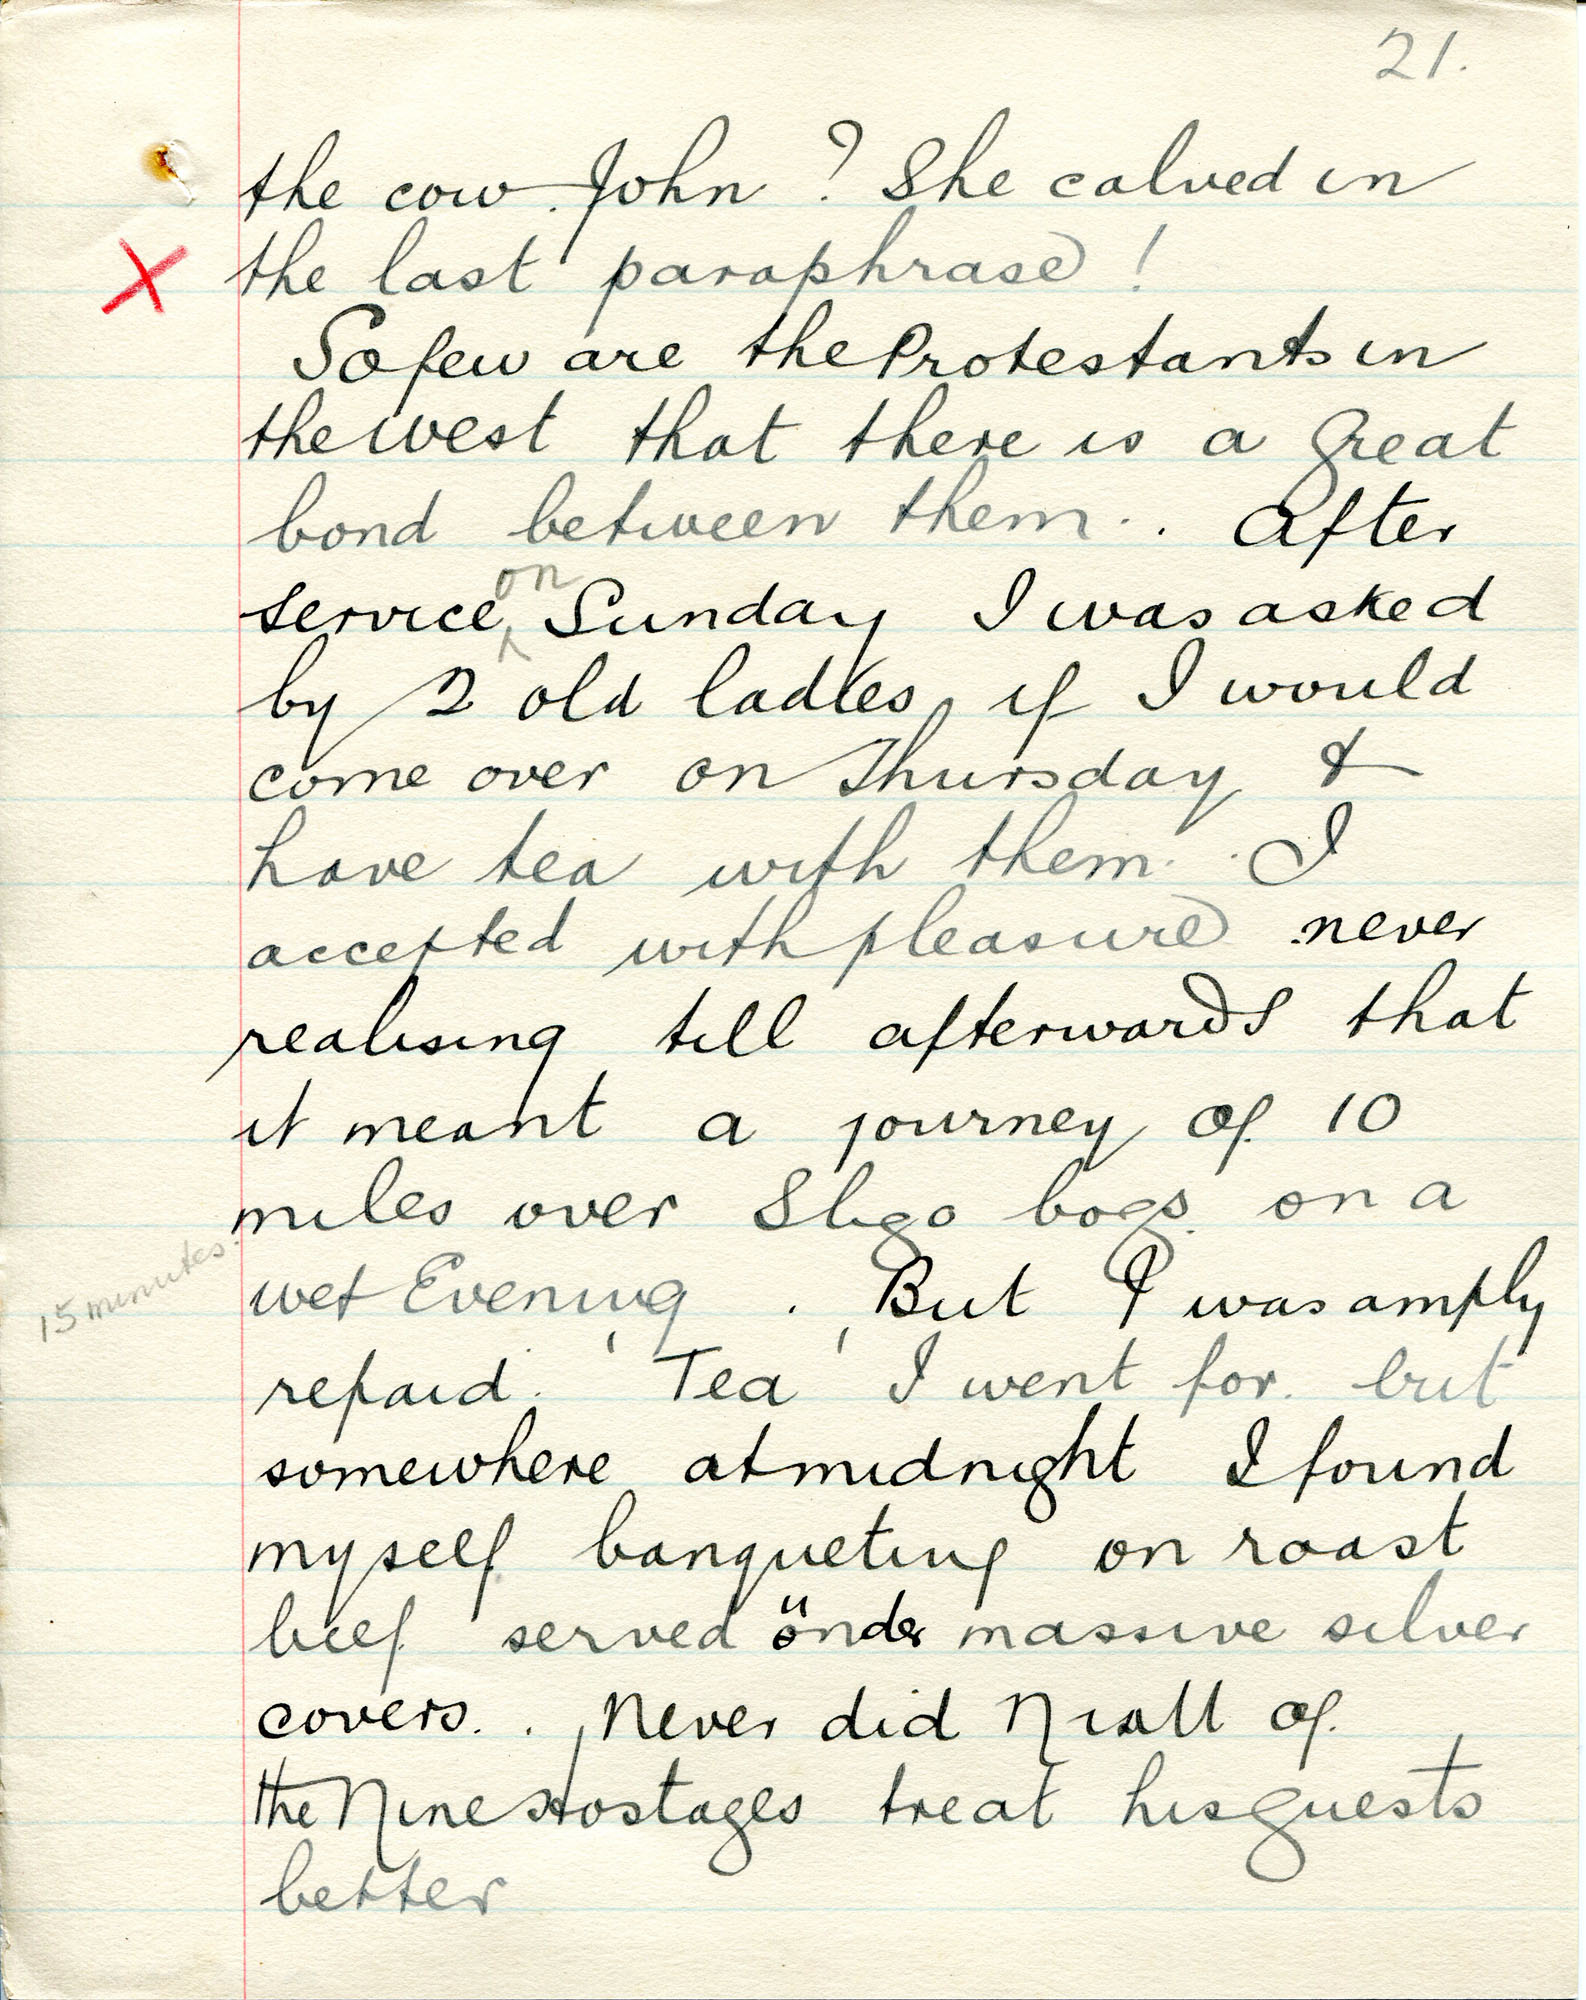 21.
the cow John ? She calved in
the last paraphrase !
So few are the Protestants in
the west that there is a great
bond between them. . After
service on Sunday I was asked
by 2 old ladies, if I would
come over on Thursday &
have tea with them. . I
accepted with pleasure never
realising till afterwards that
it meant a journey of 10
miles over Sligo bogs. on a
15 minutes.
wet Evening . But I was amply
repaid. 'Tea' I went for. but
somewhere at midnight I found
myself banqueting on roast
beef served under massive silver
covers. . Never did Niall of
the Nine Hostages treat his guests
better